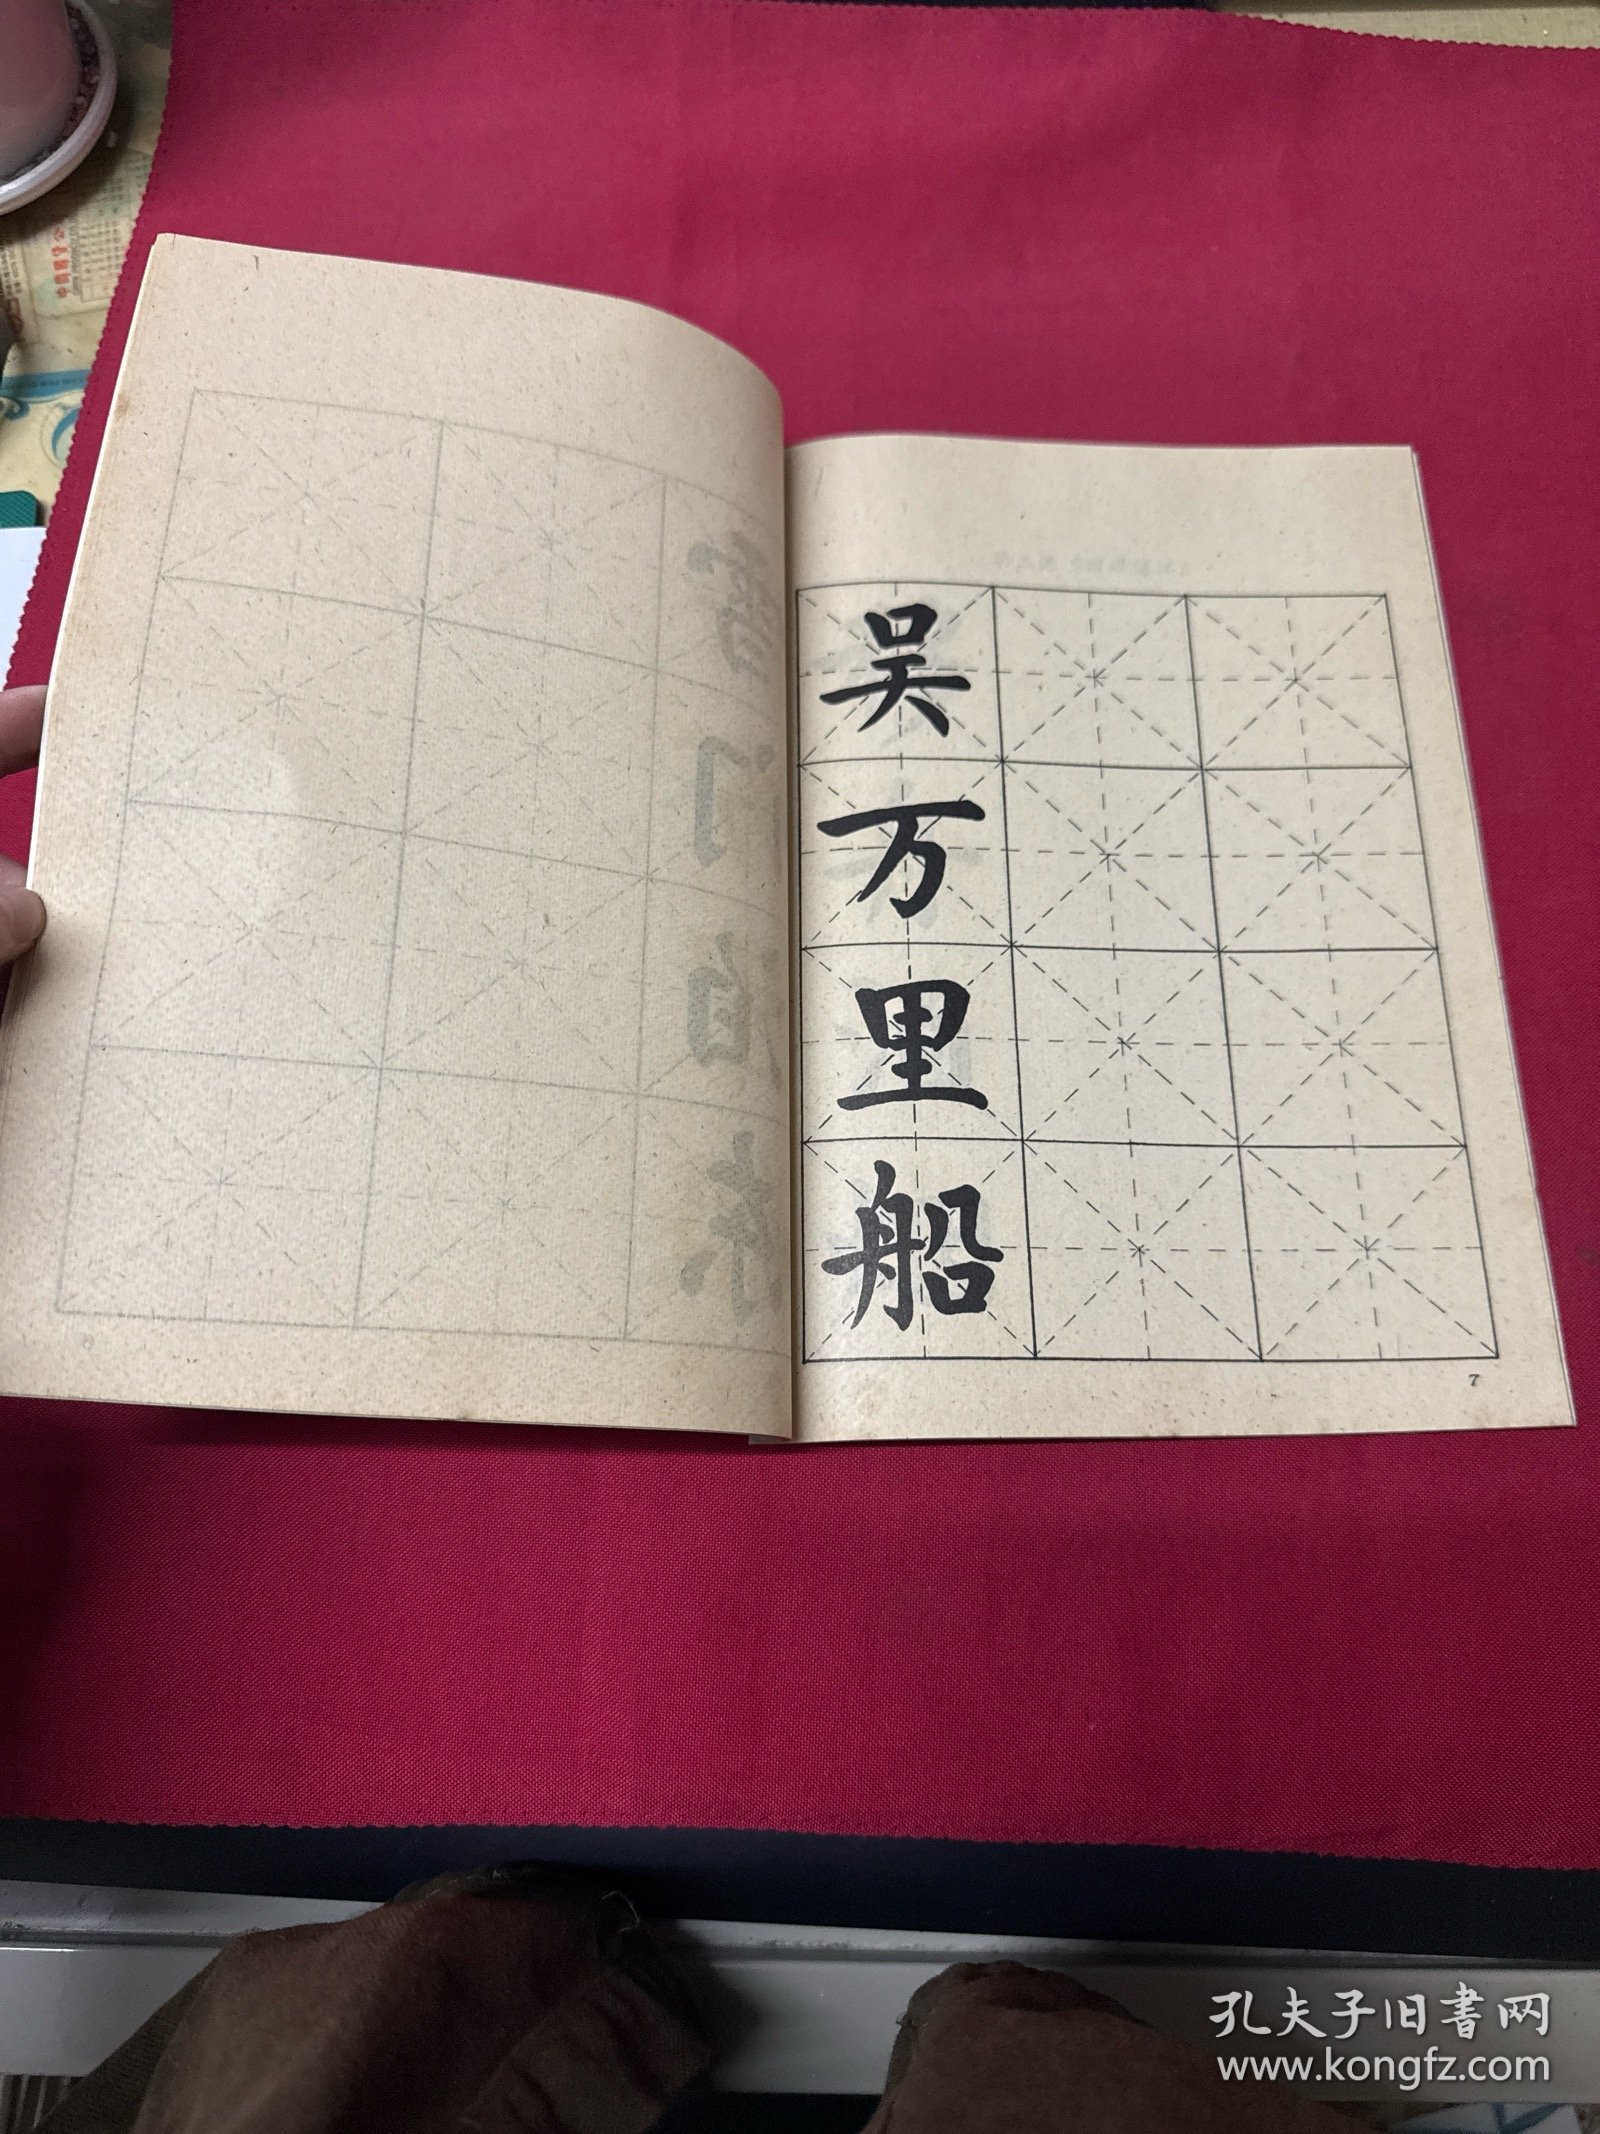 吴
万
里
船
7
孔夫子旧書网
www.kongfz.com